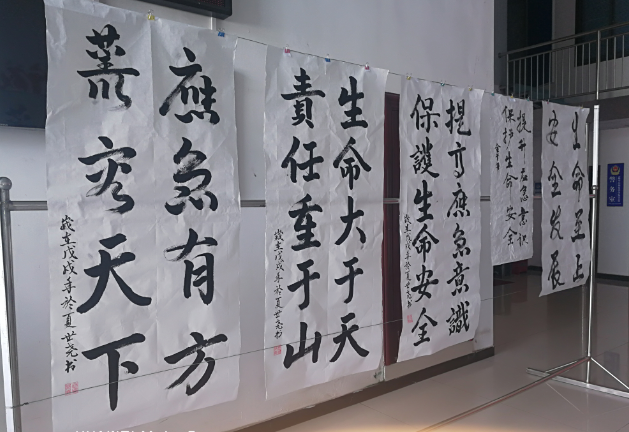 應急有方
天下
歲在戊戌年於夏世尧书
生命大于天
責任重于山
歲在戊戌年於夏世尧书
提高應急意識
保護生命安全
歲在戊戌年於夏世尧书
提升应急意识
保护生命安全
生命至上
安全发展
警务室